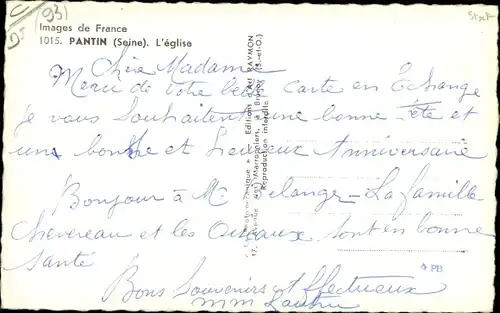 (93)
Images de France
1015. PANTIN (Seine). L'église
Chère Madame
Merci de votre belle carte en Échange
je vous Souhaitent une bonne fête et
une bonne et Heureux Anniversaire
Bonjour à M. Belanger - La famille
Chevereau et les Oiseaux sont en bonne
Santé
Bons Souvenirs et Effectueux
mm
Editions d'Art RAYMON
17, Avenue
Reproduction interdite (S.-et-O.)
PB